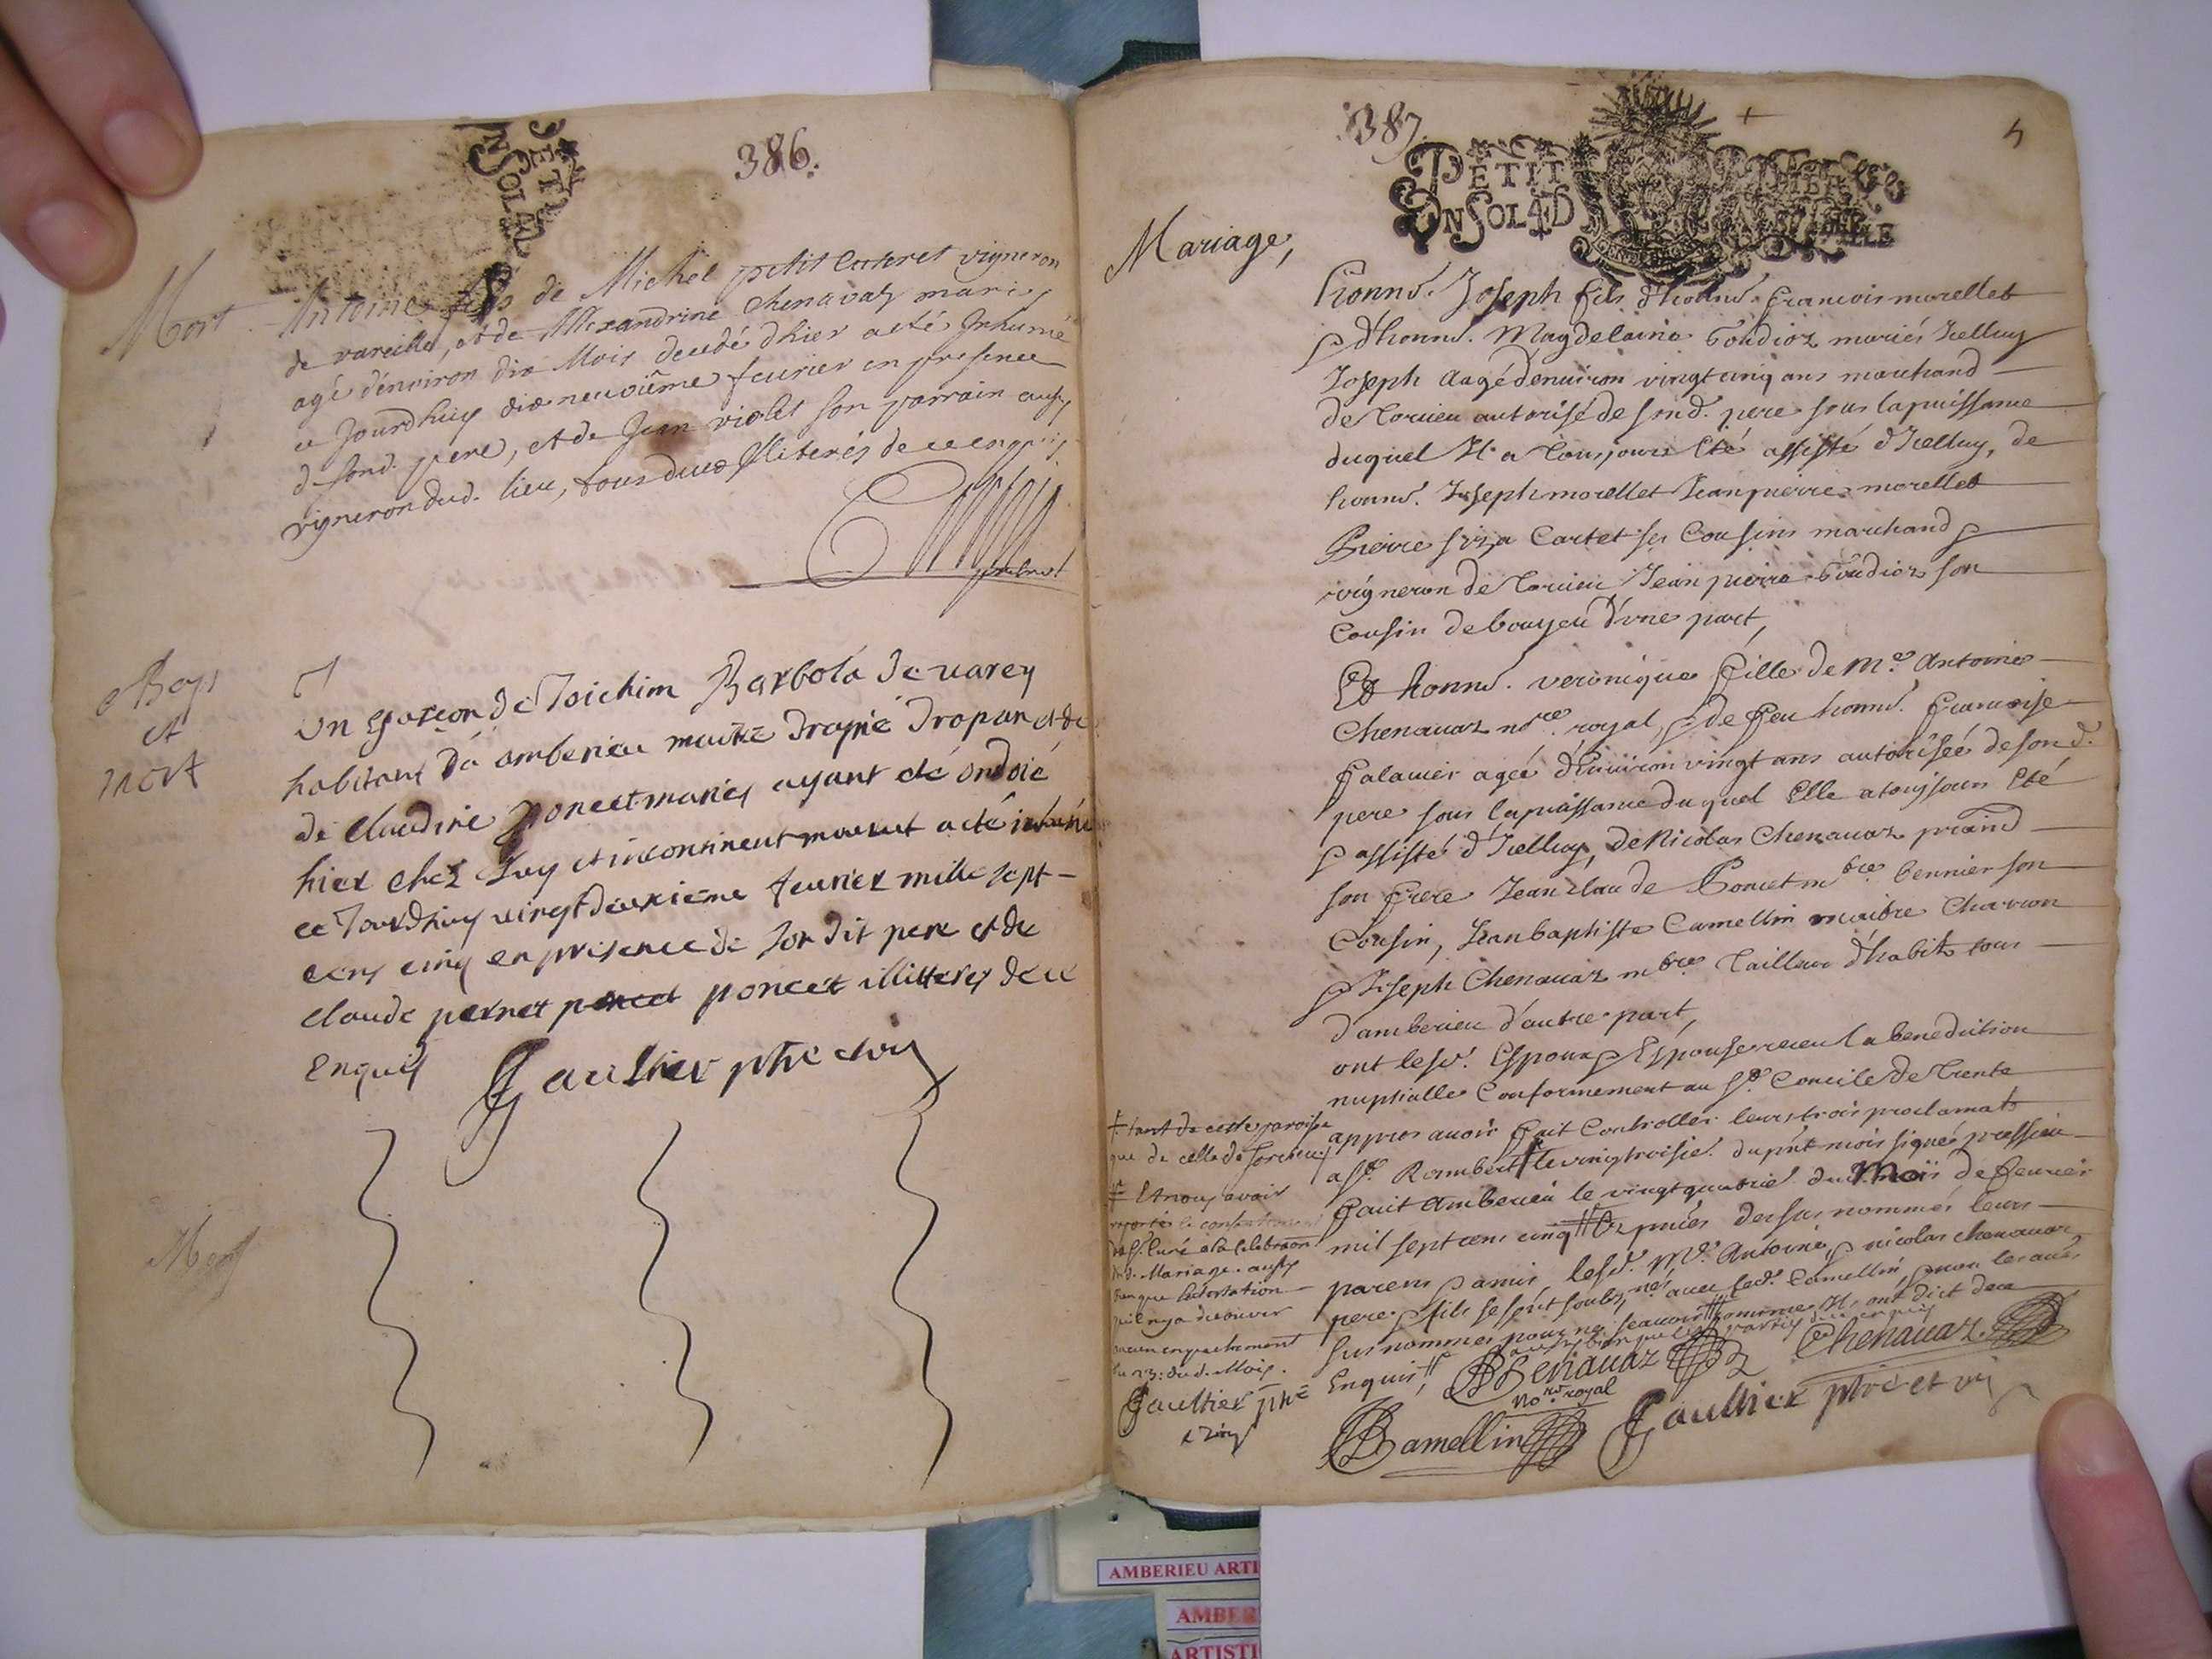 386.
PETIT
EN SOLD
Mort
Antoine fils de Michel petit Cuteret vigneron
de vareille, et de Alexandrine Chenavaz mariés
agé d'environ dix Mois decedé d'hier a eté Inhumé
ce Jourdhuy dix neuviême feurier en presence
de sond. pere, et de Jean violet son parrain aussy
vigneron dud. lieu, tous deux Illiterés de ce enquis
et
mort
Un garçon de Joichim Barbola de varey
habitant dà amberieu maitre drapié drapan et de
de Claudine poncet mariés ayant eté ondoié
hier chez Luy et incontinent mourut a eté inhumé
ce Jourdhuy vingt deuxieme feurier mille sept
cens cinq en presence de son dit pere et de
claude pernet poncet poncet illitterés de ce
Enquis
Gaultier ptre
Mort
387
5
PETIT PAPIER
EN SOLD
Mariage,
honnd. Joseph fils d'honnd. francois morellet
& d'honnd. Magdelaine Goudioz mariés Icelluy
Joseph aagé denuiron vingt cinq ans marchand
de Torcieu autorisé de sond. pere sous la puissance
duquel Il a tousjours Eté assisté d'Icelluy, de
honnd. Joseph morellet Jean pierre morellet
Pierre Cartet ses Cousins marchand &
vigneron de Torcieu Jean pierre Goudioz son
Cousin de bouyeu d'vne part,
Et honnd. veronique fille de me. Antoine
Chenauaz nore. royal, & de feu honnd. francoise
falauier ageé d'Enuiron vingt ans autorisée de son d.
pere sous la puissance du quel Elle a tousjours Eté
& assisté d'Icelluy, de Nicolas Chenauaz
son frere Jean claude Poncet mtre. bennier son
Cousin, Jean baptiste Camellin maitre Charron
& Joseph Chenauaz mtre Tailleur d'habits tous
d'amberieu d'autre part,
ont lesd. Espoux & Espouse receu la benediction
nuptialle Conformement au St. Concile de Trente
appres auoir fait Controller leurs trois proclamats
a St. Rambert le vingtroisie. du pnt mois signés
fait Amberieu le vingt quatrie. dud. Mois de feurier
mil sept cens cinq pnés dessus nommés leurs
parens & amis, lesd. Me. Antoine, & nicolas chenauaz
pere & fils se sont soubsnés auec led. Camellin, & non les autres
sus nommés pour ne sçauoir comme Ils ont dict de ce
Enquis
† tant de cette paroisse
que de celle de Torcieu
Et nous avoir
raporté le consentement
du Sr. Curé a la celebraon
dud. Mariage. aussy
bien que l'attestation
qu'il n'y a découver
aucun enpechement
du 23: dud. Mois.
Gaultier ptre
Chenauaz
nore. royal
Chenauaz
Camellin
Gaultier ptre et vic
AMBERIEU ARTI
AMBER
ARTISTI